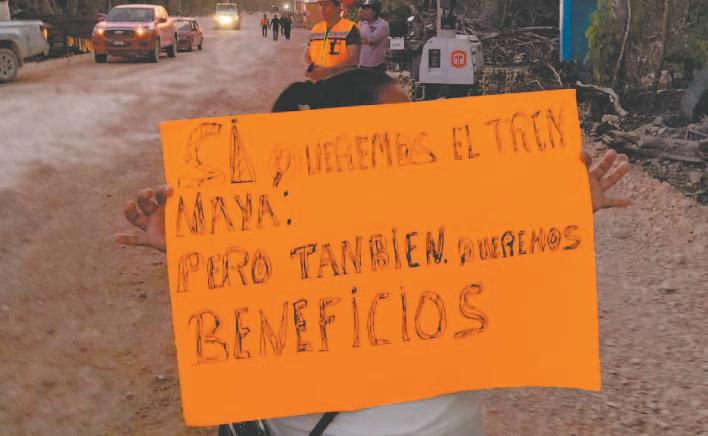 SÍ QUEREMOS EL TREN
MAYA:
PERO TANBIEN. QUEREMOS
BENEFICIOS